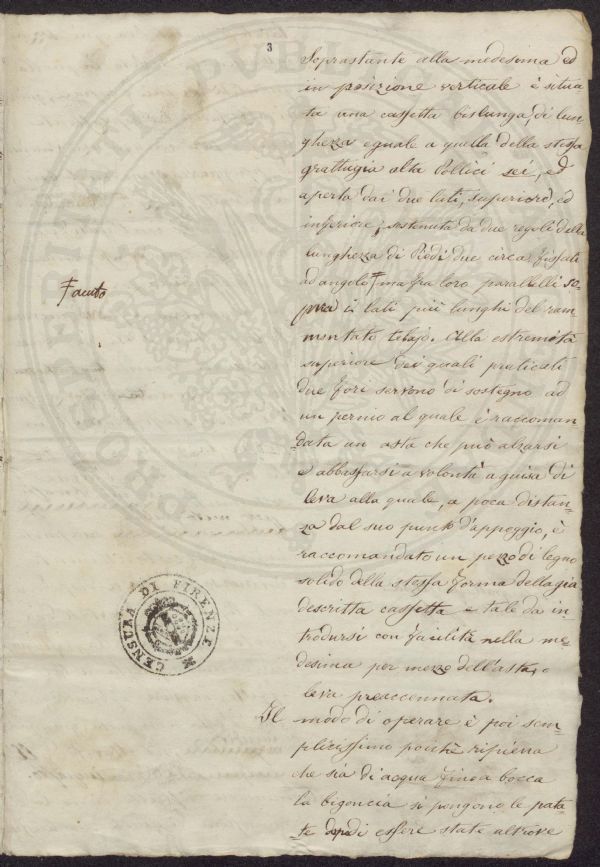 3
Soprastante alla medesima ed
in posizione verticale è situa
ta una cassetta bislunga, di lun
ghezza eguale a quella della stessa
grattugia alta Pollici sei, ed
aperta dai due lati, superiore, ed
inferiore; sostenuta da due regoli della
lunghezza di Piedi due circa fissati
ad angolo Ŧ ma fra loro paralleli so-
pra i lati più lunghi del ram
Ŧ acuto
mentato telajo. Alla estremità
superiore dei quali praticati
due fori servono di sostegno ad
un pernio al quale è raccoman-
data un asta che può alzarsi
e abbassarsi a volontà a guisa di
leva alla quale, a poca distan-
za dal suo punto d'appoggio, è
raccomandato un pezzo di legno
solido della stessa forma della già
descritta cassetta e tale da in
trodursi con facilità nella me-
desima per mezzo dell'asta, o
leva preaccennata.
Il modo di operare è poi sem-
plicissimo poichè ripiena
che sia di acqua fino a bocca
la bigoncia si pongono le pata-
te dopo di essere state altrove
CENSURA DI FIRENZE